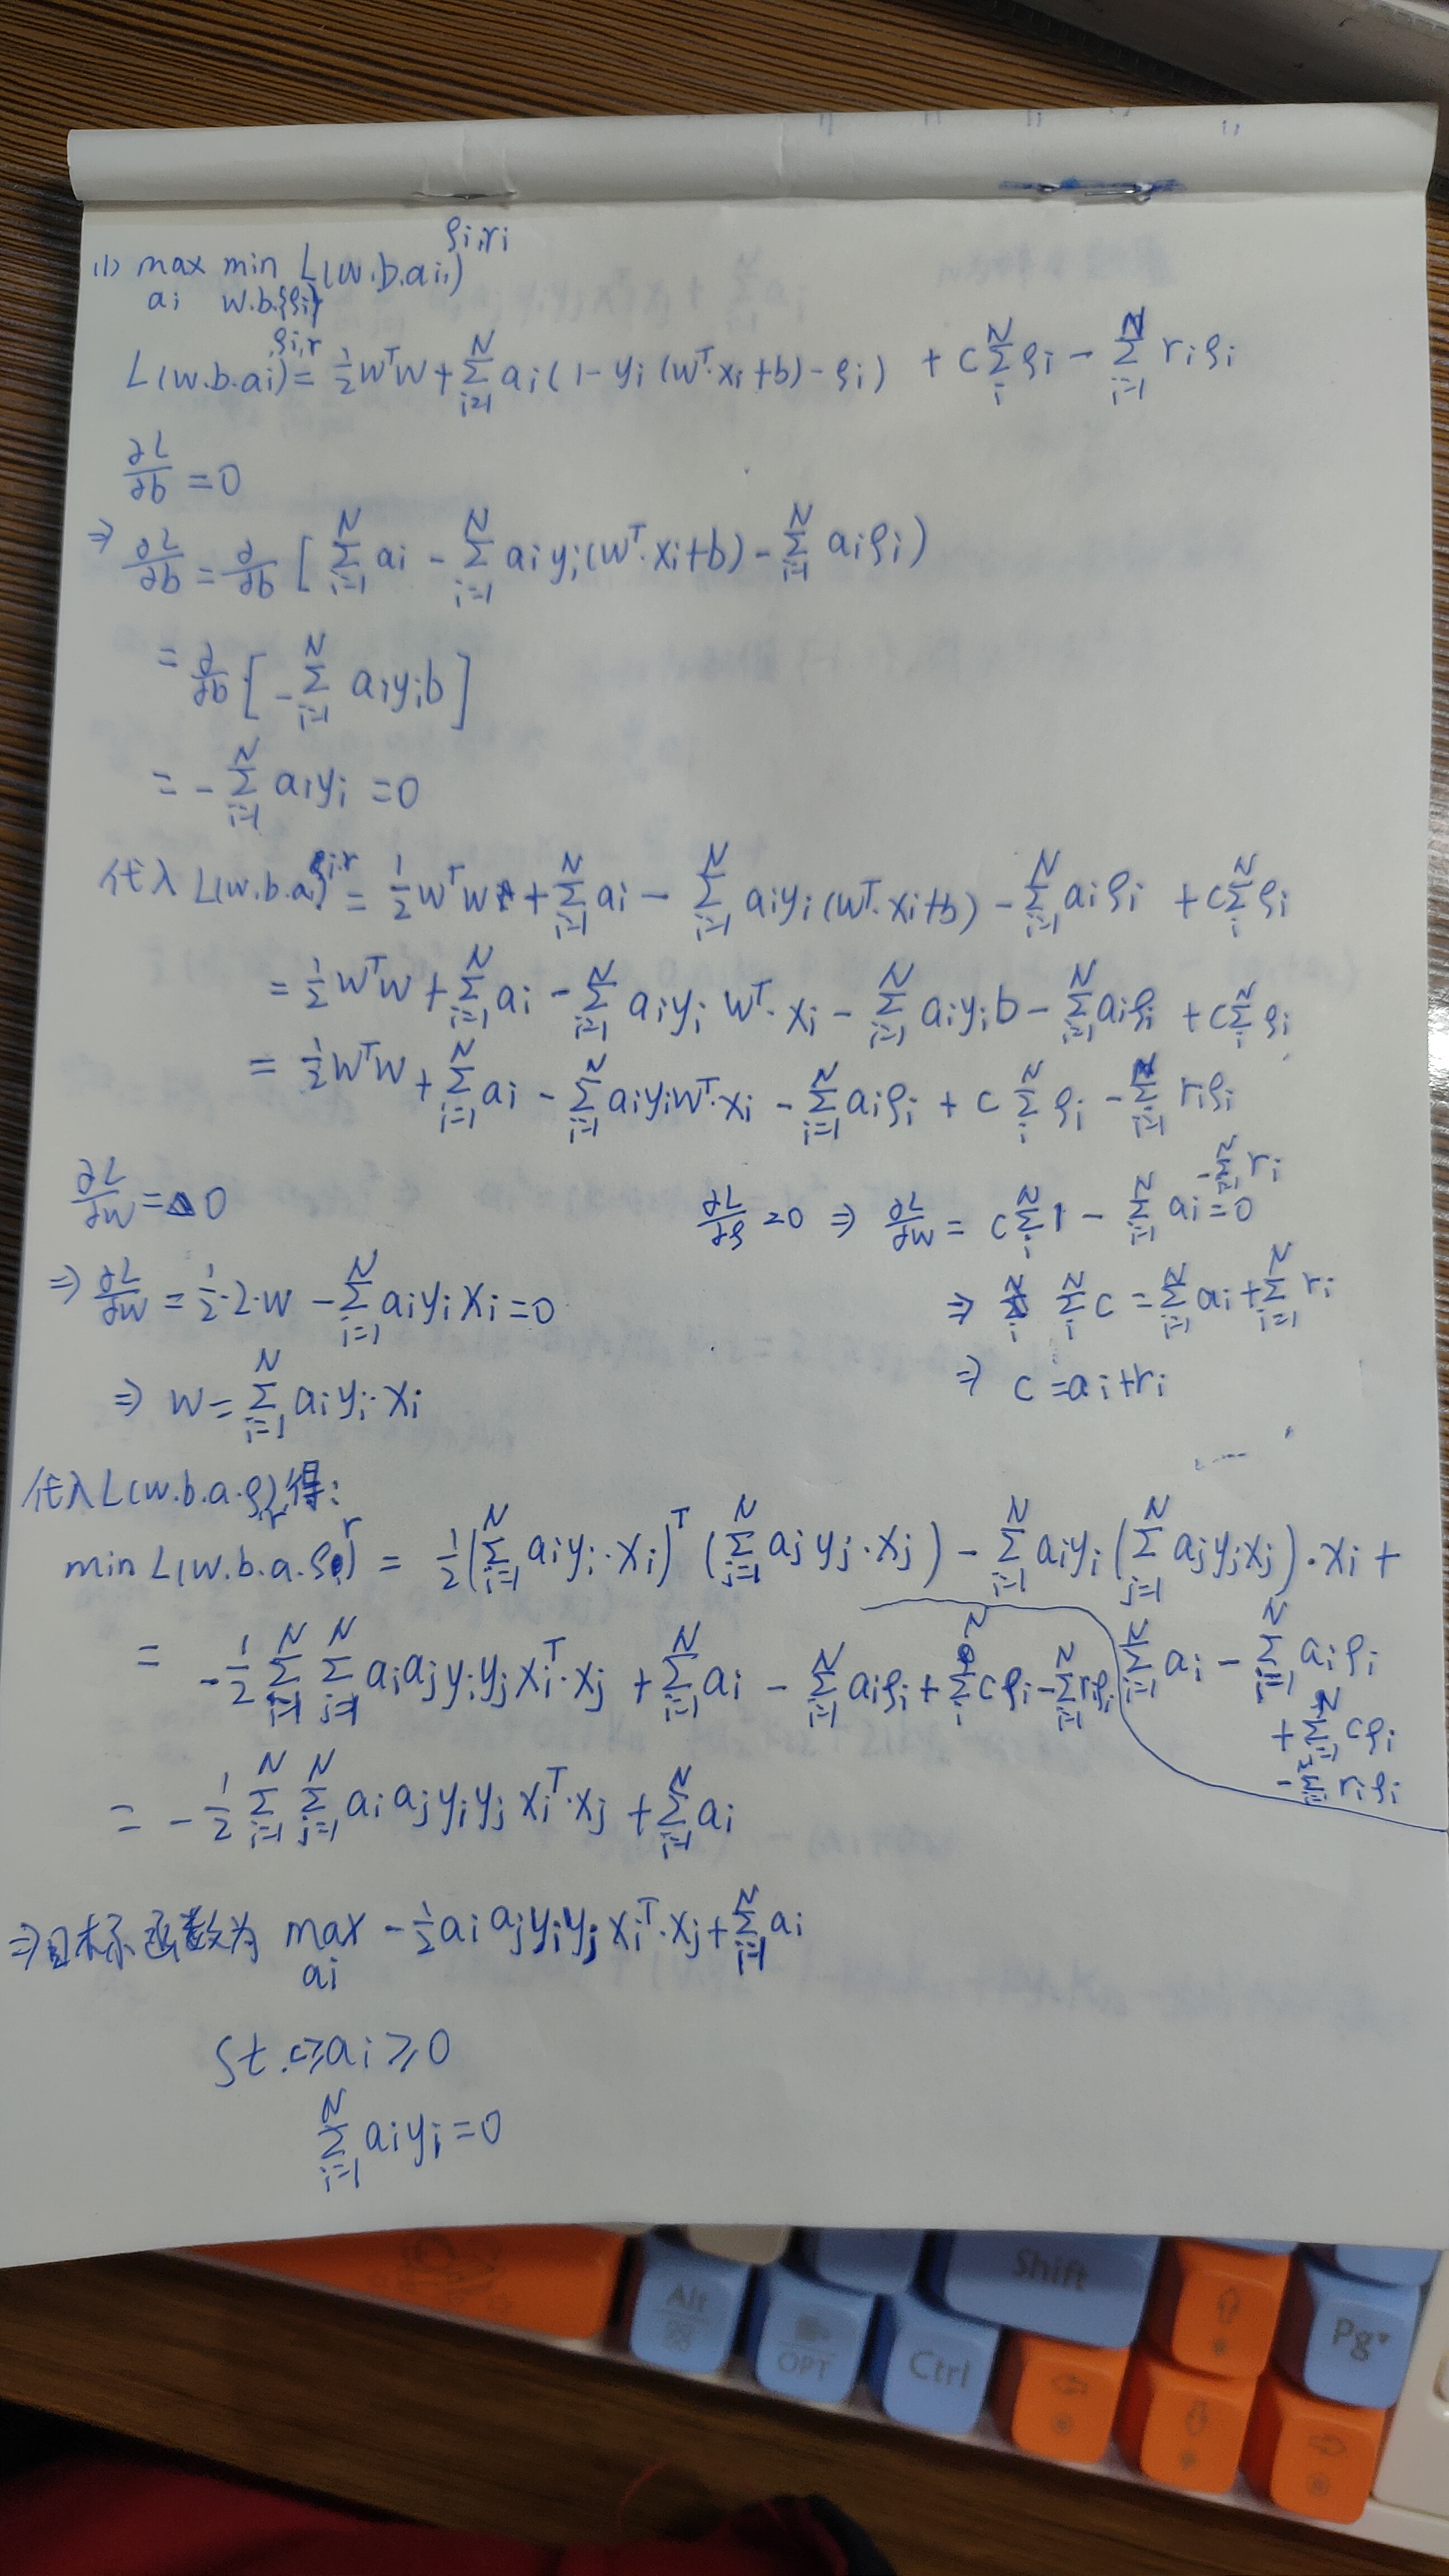 (1) max min L(w.b.ai,) ρi,ri
ai w.b.{ρi}
L(w.b.ai) ρi,r = ½wᵀw + Σ_{i=1}^{N} ai(1-yi(wᵀ·xi+b)-ρi) + cΣ_i^N ρi - Σ_{i=1}^{N} riρi
∂L/∂b = 0
⇒ ∂L/∂b = ∂/∂b [Σ_{i=1}^{N} ai - Σ_{i=1}^{N} aiyi(wᵀ·xi+b) - Σ_{i=1}^{N} aiρi)
= ∂/∂b [-Σ_{i=1}^{N} aiyib]
= -Σ_{i=1}^{N} aiyi = 0
代入 L(w.b.a) ρi,r = ½wᵀw + Σ_{i=1}^{N} ai - Σ_{i=1}^{N} aiyi(wᵀ·xi+b) - Σ_{i=1}^{N} aiρi + cΣ_i^N ρi
= ½wᵀw + Σ_{i=1}^{N} ai - Σ_{i=1}^{N} aiyi wᵀ·xi - Σ_{i=1}^{N} aiyib - Σ_{i=1}^{N} aiρi + cΣ_i^N ρi
= ½wᵀw + Σ_{i=1}^{N} ai - Σ_{i=1}^{N} aiyiwᵀ·xi - Σ_{i=1}^{N} aiρi + cΣ_i^N ρi - Σ_{i=1}^{N} riρi
∂L/∂w = 0
⇒ ∂L/∂w = ½·2·w - Σ_{i=1}^{N} aiyixi = 0
⇒ w = Σ_{i=1}^{N} aiyi·xi
∂L/∂ρ = 0 ⇒ ∂L/∂w = cΣ_i^N 1 - Σ_{i=1}^{N} ai - Σ_{i=1}^{N} ri = 0
⇒ Σ_i^N c = Σ_{i=1}^{N} ai + Σ_{i=1}^{N} ri
⇒ c = ai+ri
代入L(w.b.a.ρ,r)得:
min L(w.b.a.ρ,r) = ½(Σ_{i=1}^{N} aiyi·xi)ᵀ(Σ_{j=1}^{N} ajyj·xj) - Σ_{i=1}^{N} aiyi(Σ_{j=1}^{N} ajyjxj)·xi +
Σ_{i=1}^{N} ai - Σ_{i=1}^{N} aiρi
+Σ_{i=1}^{N} cρi
-Σ_{i=1}^{N} riρi
= -½Σ_{i=1}^{N} Σ_{j=1}^{N} aiajyiyjxiᵀ·xj + Σ_{i=1}^{N} ai - Σ_{i=1}^{N} aiρi + Σ_i^N cρi - Σ_{i=1}^{N} riρi
= -½Σ_{i=1}^{N} Σ_{j=1}^{N} aiajyiyjxiᵀ·xj + Σ_{i=1}^{N} ai
⇒目标函数为 max -½aiajyiyjxiᵀ·xj + Σ_{i=1}^{N} ai
ai
St. c≥ai≥0
Σ_{i=1}^{N} aiyi=0
Shift
Alt
OPT
Ctrl
Pg